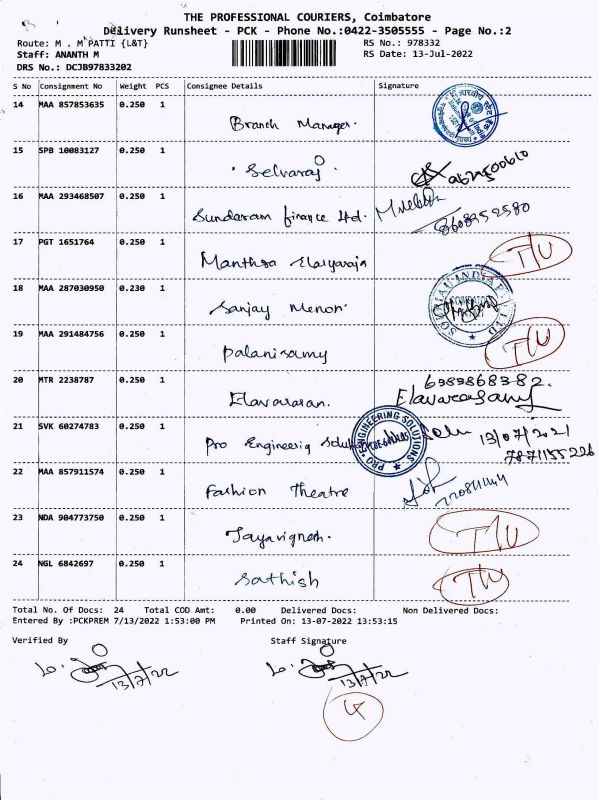 THE PROFESSIONAL COURIERS, Coimbatore
Delivery Runsheet - PCK - Phone No.:0422-3505555 - Page No.:2
Route: M . M PATTI {L&T} RS No.: 978332
Staff: ANANTH M RS Date: 13-Jul-2022
DRS No.: DCJB97833202
S No Consignment No Weight PCS Consignee Details Signature
14 MAA 857853635 0.250 1 Branch Manager.
15 SPB 10083127 0.250 1 Selvaraj
16 MAA 293468507 0.250 1 Sundaram finance ltd. 8608952580
17 PGT 1651764 0.250 1 Manthra Elaiyaraja T/U
18 MAA 287030950 0.230 1 Sanjay Menon.
19 MAA 291484756 0.250 1 Palanisamy T/U
20 MTR 2238787 0.250 1 Elavarasan. 6383868382.
21 SVK 60274783 0.250 1 Pro Engineerig PRO ENGINEERING SOLUTIONS 13/07/2021
7871155226
22 MAA 857911574 0.250 1 Fashion Theatre
23 NDA 904773750 0.250 1 Jayavignesh. T/U
24 NGL 6842697 0.250 1 Sathish T/U
Total No. Of Docs: 24 Total COD Amt: 0.00 Delivered Docs: Non Delivered Docs:
Entered By :PCKPREM 7/13/2022 1:53:00 PM Printed On: 13-07-2022 13:53:15
Verified By Staff Signature
13/7/22 13/7/22
4